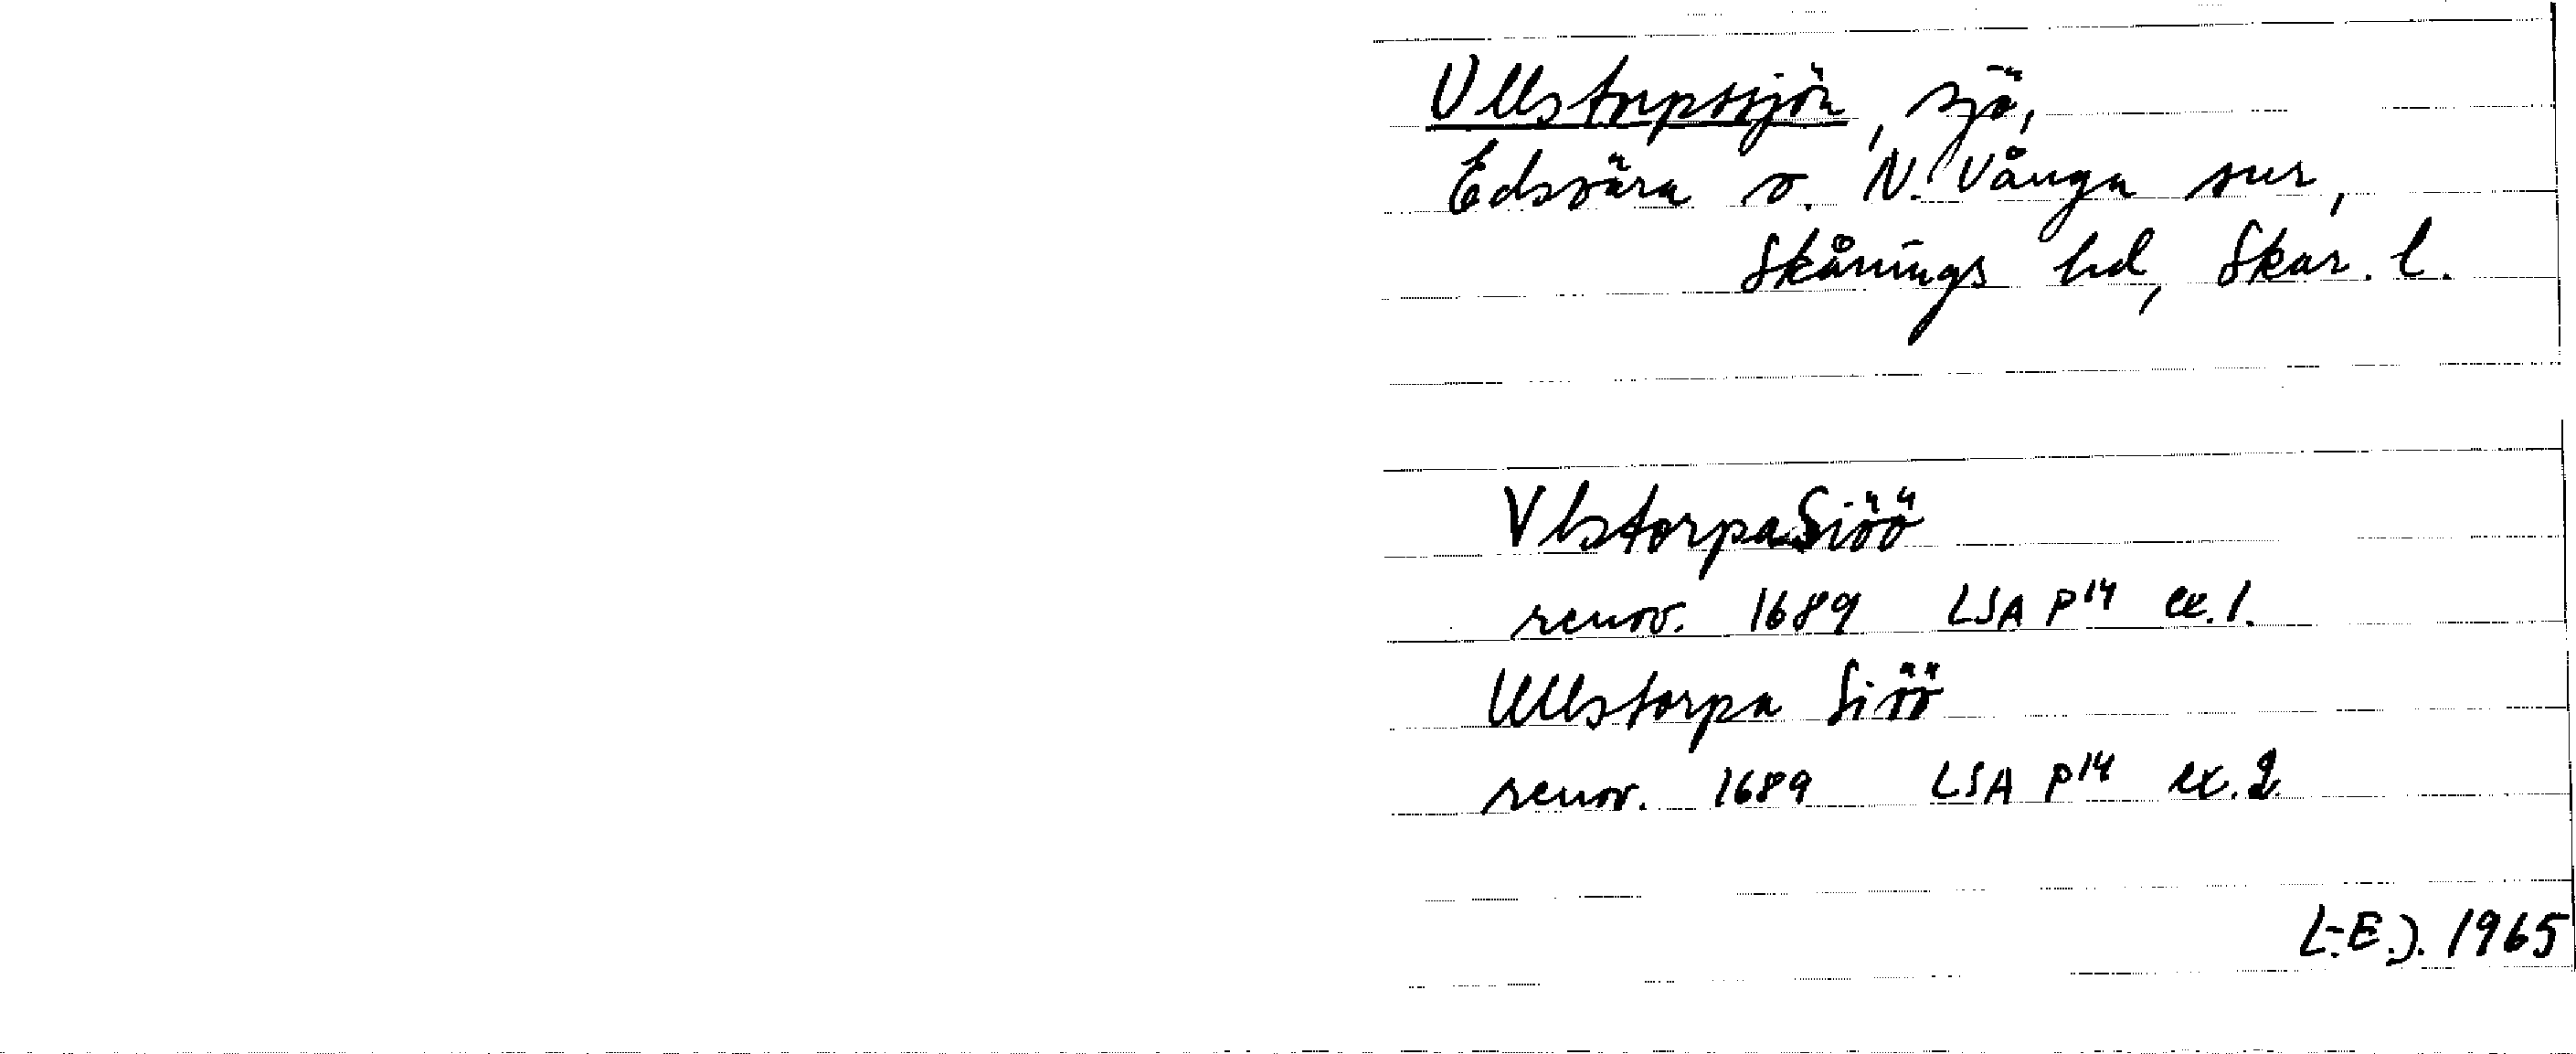 Ullstorpssjön, sjö,
Edsvära o. N. Vånga snr,
Skånings hd, Skar. l.
VlstorpaSiöö
renov. 1689 LSA P14 ex. 1.
Ullstorpa Siöö
renov. 1689 LSA P14 ex. 2
L-E.J. 1965